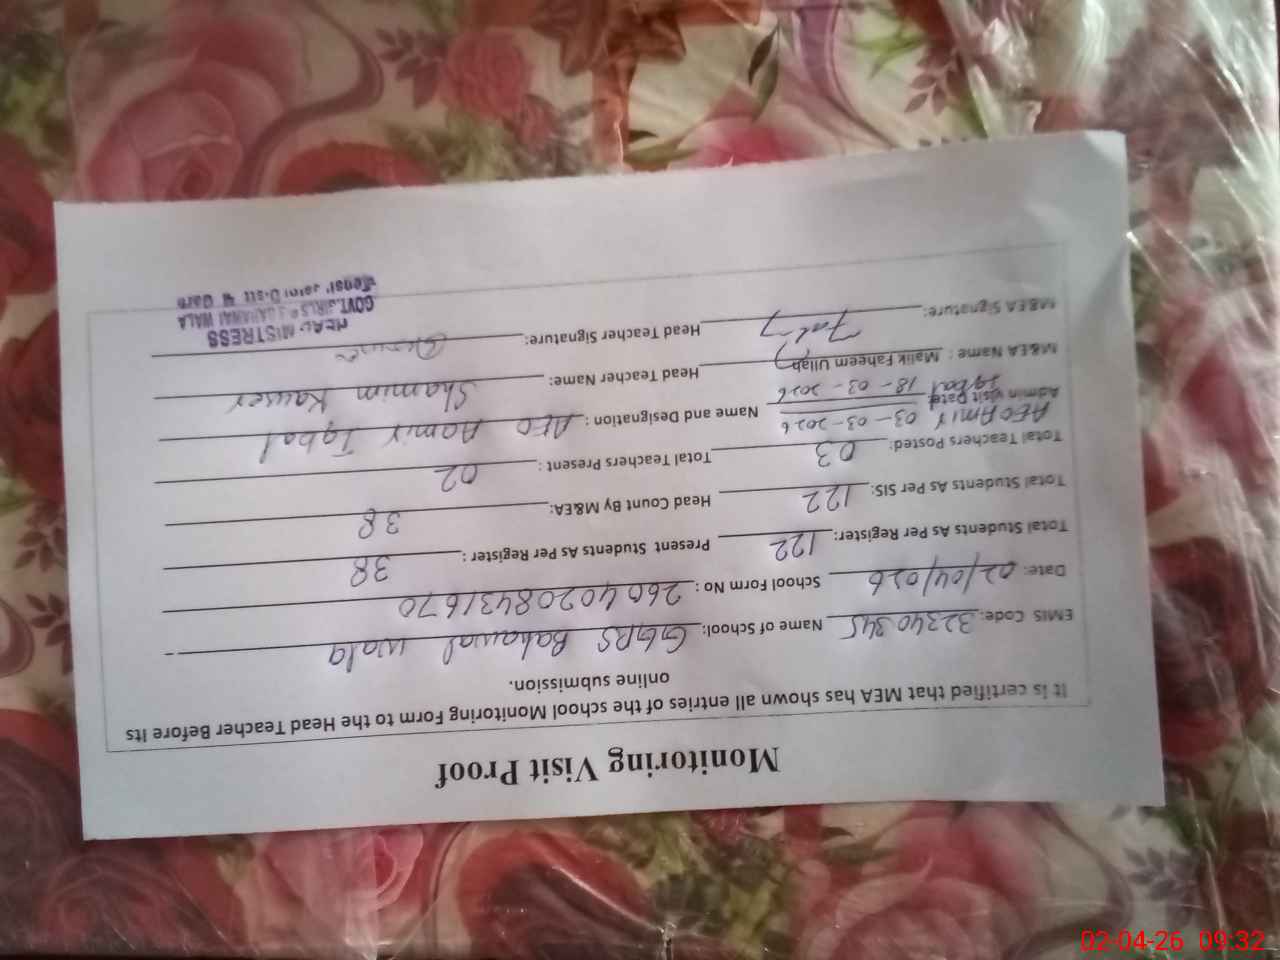 Monitoring Visit Proof
It is certified that MEA has shown all entries of the school Monitoring Form to the Head Teacher Before Its
online submission.
EMIS Code: 32340345 Name of School: GGPS Bahawal wala
Date: 02/04/026 School Form No : 26040208431670
Total Students As Per Register: 122 Present Students As Per Register : 38
Total Students As Per SIS: 122 Head Count By M&EA: 38
Total Teachers Posted: 03 Total Teachers Present : 02
AEO Amir Iqbal
Admin visit Date: 03-03-2026 Name and Designation : AEO Aamir Iqbal
18-03-2026
M&EA Name : Malik Faheem Ullah Head Teacher Name: Shamim Kauser
M&EA Signature: Head Teacher Signature:
HEAD MISTRESS
GOVT. GIRLS P/S BAHAWAL WALA
02-04-26 09:32